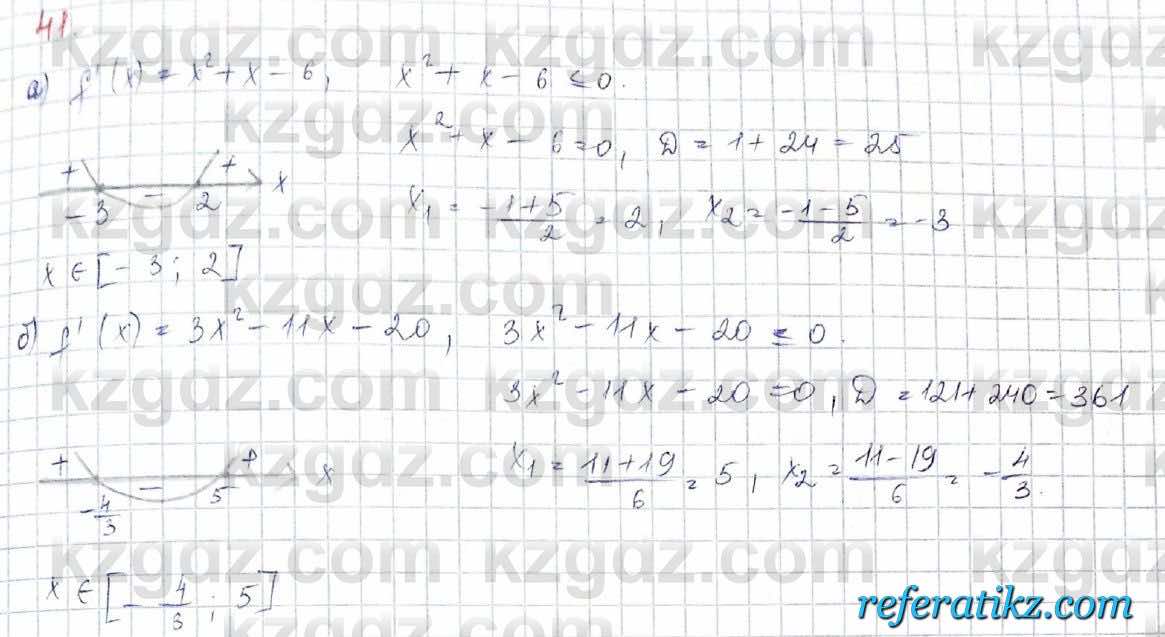 41.
а) f'(x) = x² + x - 6, x² + x - 6 ≤ 0.
x² + x - 6 = 0, D = 1 + 24 = 25
+ - + x
-3 2
x₁ = (-1+5)/2 = 2, x₂ = (-1-5)/2 = -3
x ∈ [-3; 2]
б) f'(x) = 3x² - 11x - 20, 3x² - 11x - 20 ≤ 0.
3x² - 11x - 20 = 0, D = 121 + 240 = 361
+ - + x
-4/3 5
x₁ = (11+19)/6 = 5, x₂ = (11-19)/6 = -4/3.
x ∈ [-4/3; 5]
kzgdz.com
referatikz.com